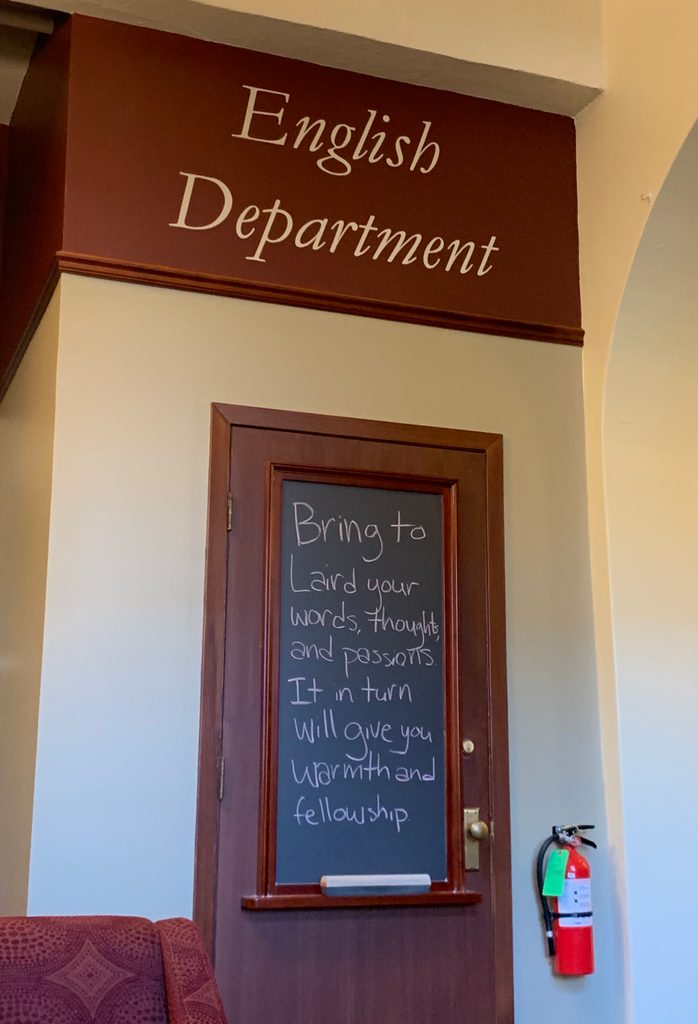 English
Department
Bring to
Laird your
words, thoughts,
and passions.
It in turn
will give you
warmth and
fellowship.